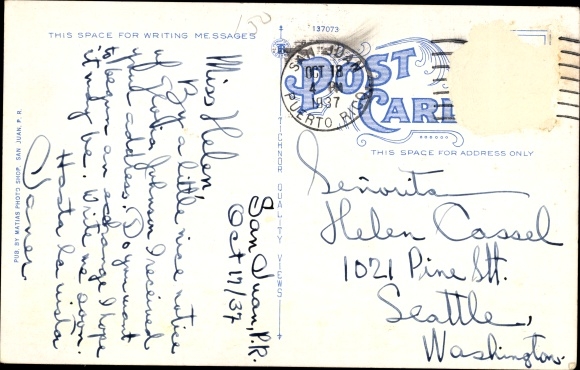 THIS SPACE FOR WRITING MESSAGES
San Juan, P.R.
Oct 17/37
Miss Helen,
By a little nice notice
of Johnson I received
your address. Do you want
to begin an exchange I hope
it may be. Write me soon.
Hasta la vista
PUB. BY MATIAS PHOTO SHOP, SAN JUAN, P. R.
TICHNOR QUALITY VIEWS
137073
POST CARD
SAN JUAN
OCT 18
4 PM
1937
PUERTO RICO
THIS SPACE FOR ADDRESS ONLY
Señorita
Helen Cassel
1021 Pine St.
Seattle,
Washington.